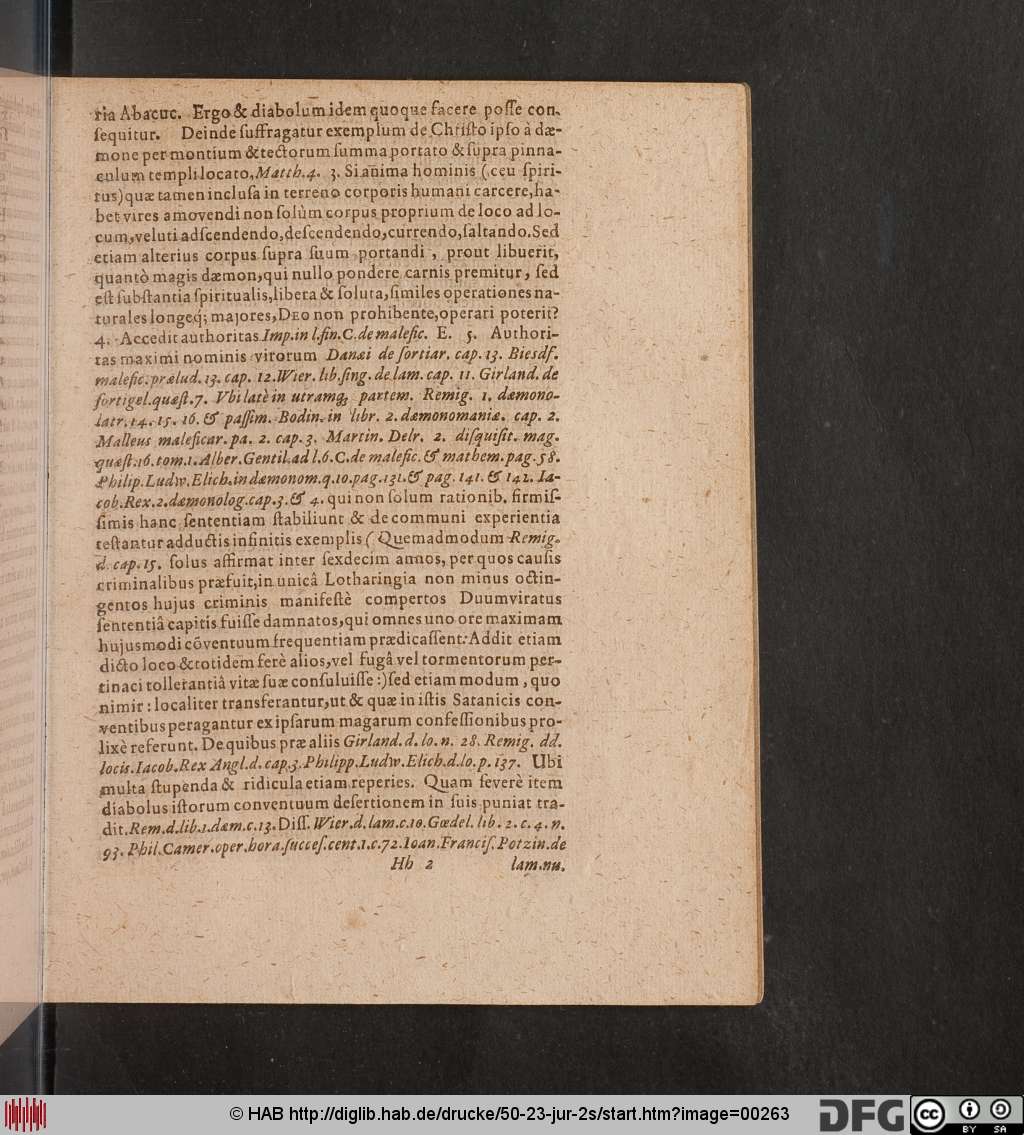 ria Abacuc. Ergo & diabolum idem quoque facere poſſe con-
ſequitur. Deinde ſuffragatur exemplum de Chriſto ipſo à dæ-
mone per montium & tectorum ſumma portato & ſupra pinna-
culum templi locato, Matth. 4. 3. Si anima hominis (ceu ſpiri-
tus) quæ tamen incluſa in terreno corporis humani carcere, ha-
bet vires amovendi non ſolùm corpus proprium de loco ad lo-
cum, veluti adſcendendo, deſcendendo, currendo, ſaltando. Sed
etiam alterius corpus ſupra ſuum portandi, prout libuerit,
quantò magis dæmon, qui nullo pondere carnis premitur, ſed
eſt ſubſtantia ſpiritualis, libera & ſoluta, ſimiles operationes na-
turales longeq; majores, DEO non prohibente, operari poterit?
4. Accedit authoritas Imp. in l. fin. C. de malefic. E. 5. Authori-
tas maximi nominis virorum Danæi de ſortiar. cap. 13. Biesdf.
malefic. prælud. 13. cap. 12. Wier. lib. ſing. de lam. cap. 11. Girland. de
ſortigel. quæſt. 7. Vbi latè in utramq; partem. Remig. 1. dæmono-
latr. 14. 15. 16. & paſſim. Bodin. in libr. 2. dæmonomaniæ. cap. 2.
Malleus maleficar. pa. 2. cap. 3. Martin. Delr. 2. diſquiſit. mag.
quæſt. 16. tom. 1. Alber. Gentil. ad l. 6. C. de malefic. & mathem. pag. 58.
Philip. Ludw. Elich. in dæmonom. q. 10. pag. 131. & pag. 141. & 142. Ia-
cob. Rex. 2. dæmonolog. cap. 3. & 4. qui non ſolum rationib. firmiſ-
ſimis hanc ſententiam ſtabiliunt & de communi experientia
teſtantur adductis infinitis exemplis (Quemadmodum Remig.
d. cap. 15. ſolus affirmat inter ſexdecim annos, per quos cauſis
criminalibus præfuit, in unicâ Lotharingia non minus octin-
gentos hujus criminis manifeſtè compertos Duumviratus
ſententiâ capitis fuiſſe damnatos, qui omnes uno ore maximam
hujusmodi cōventuum frequentiam prædicaſſent: Addit etiam
dicto loco & totidem ferè alios, vel fugâ vel tormentorum per-
tinaci tollerantiâ vitæ ſuæ conſuluiſſe:) ſed etiam modum, quo
nimir: localiter transferantur, ut & quæ in iſtis Satanicis con-
ventibus peragantur ex ipſarum magarum confeſſionibus pro-
lixè referunt. De quibus præ aliis Girland. d. lo. n. 28. Remig. dd.
locis. Iacob. Rex Angl. d. cap. 3. Philipp. Ludw. Elich. d. lo. p. 137. Ubi
multa ſtupenda & ridicula etiam reperies. Quam ſeverè item
diabolus iſtorum conventuum deſertionem in ſuis puniat tra-
dit. Rem. d. lib. 1. dæm. c. 13. Diſſ. Wier. d. lam. c. 10. Gœdel. lib. 2. c. 4. n.
93. Phil. Camer. oper. hora. ſucceſ. cent. 1. c. 72. Ioan. Franciſ. Potzin. de
Hh 2 lam. nu.
© HAB http://diglib.hab.de/drucke/50-23-jur-2s/start.htm?image=00263
DFG
cc BY SA